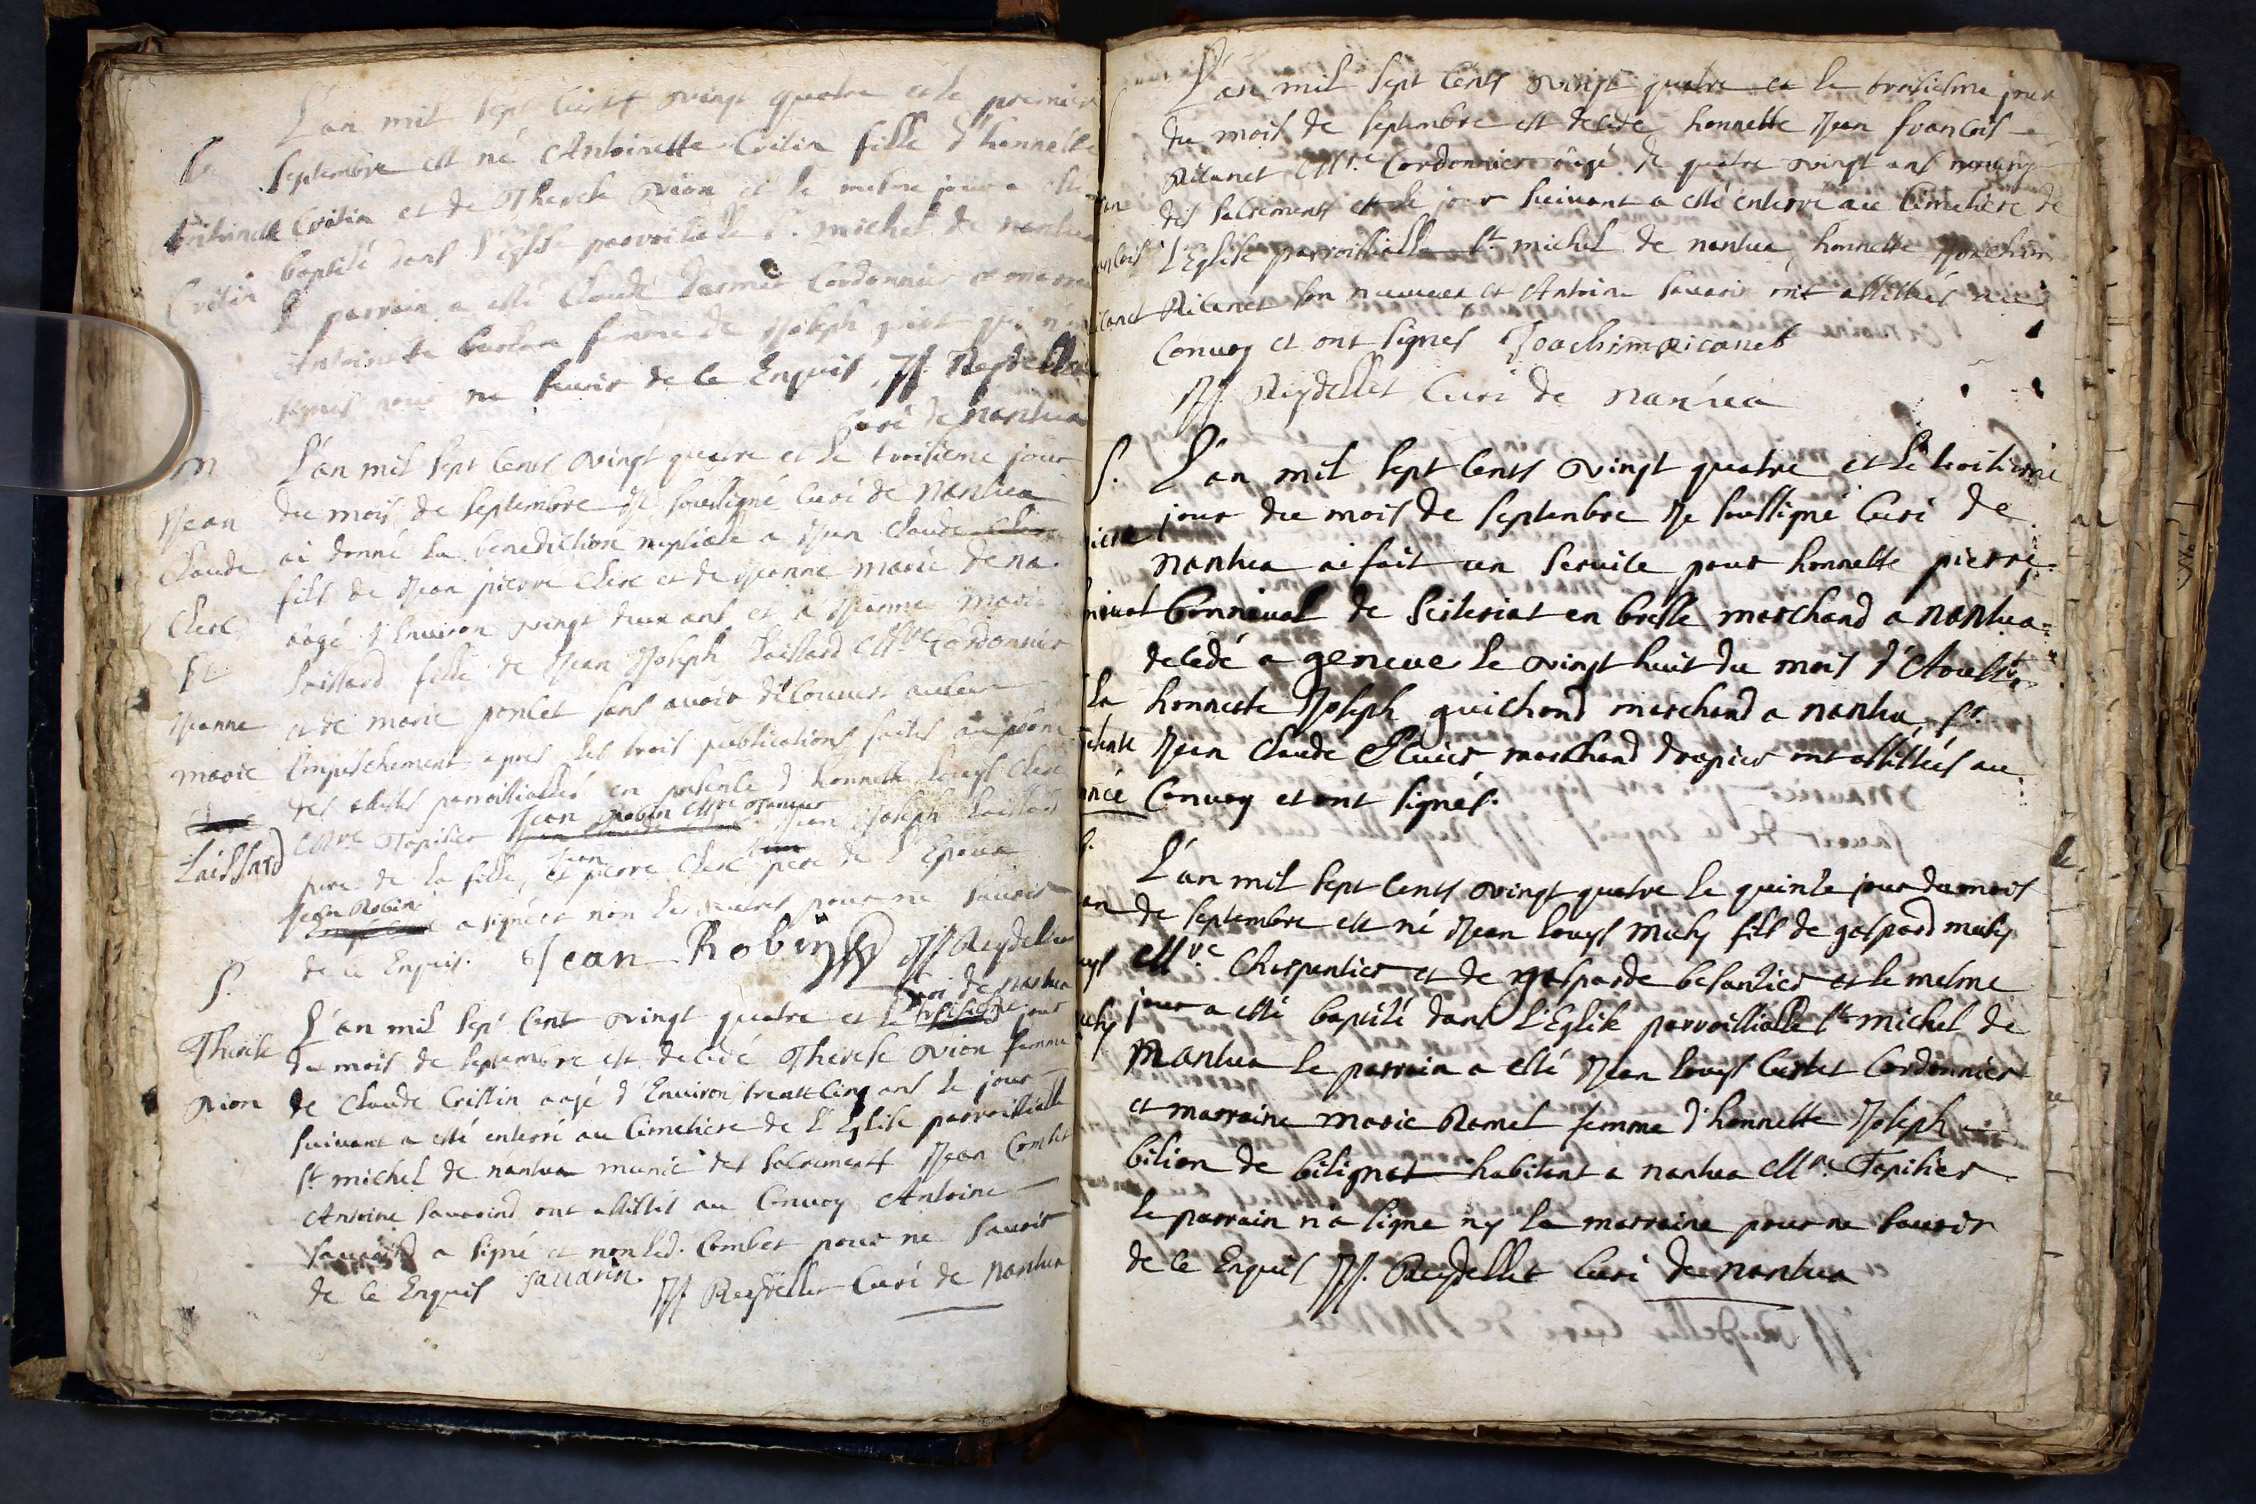 L'an mil sept Cents vingt quatre et le premier
septembre est né Antoinette Critin fille d'honnette
Critin et de Therese Vion et le mesme jour a esté
baptisé dans l'Eglise parroissialle St. michel de nantua
le parrain a esté Claude Cordonnier et marraine
Antoinette femme de Joseph
signés pour ne sauoir de ce Enquis JJ. Reydellet
Curé de Nantua
Antoinette
Critin
m
Jean
Claude
Clerc
et
Jeanne
marie
Laissard
L'an mil sept Cents vingt quatre et le troisieme jour
du mois de septembre Je soussigné Curé de Nantua
ai donné la benediction nuptiale a Jean Claude Clerc
fils de Jean pierre Clerc et de Jeanne marie
aagé d'Enuiron vingt deux ans et a Jeanne marie
Laissard fille de Jean Joseph Laissard Mtre Cordonnier
et de marie poncet sans auoir découuert aucun
Empeschement apres les trois publications faites au prône
des messes parroissialles en presence d'honnette Louys Clerc
Mtre Tapisier Jean Robin Mtre Jean Joseph Laissard
pere de la fille, et Jean pierre Clerc pere de l'Epoux
Jean Robin a signé et non les autres pour ne sauoir
de ce Enquis. Jean Robin JJ Reydellet
Curé de Nantua
S.
Therese
Vion
L'an mil sept Cent vingt quatre et le troisieme jour
du mois de septembre est decedé Therese Vion femme
de Claude Crittin aagé d'Enuiron trente Cinq ans le jour
suiuant a esté enterré au Cimetiere de l'Eglise parroissialle
St michel de nantua munie des sacrements Jean Combet
Antoine sauarind ont assistés au Conuoy Antoine
sauarind a signé et non led. Combet pour ne sauoir
de ce Enquis sauarin. JJ Reydellet Curé de Nantua
L'an mil sept Cents vingt quatre et le troisiesme jour
du mois de septembre est decedé honnette Jean francois
Ricanet Mtre Cordonnier aagé de quatre vingt ans muny
des sacrements et le jour suiuant a esté enterré au Cimetiere de
l'Eglise parroissialle St michel de nantua, honnette Joachim
Ricanet son nueueu et Antoine sauarin ont assistés au
Conuoy et ont signés Joachim ricanet
JJ. Reydellet Curé de Nantua
S. L'an mil sept Cents vingt quatre et le troisieme
jour du mois de septenbre Je soussigné Curé de
nantua ai fait un seruice pour honnette pierre
bonniual de Sisteriat en bresse marchand a nantua
decedé a geneue le vingt huit du mois d'Aoust,
honneste Joseph guichond marchand a nantua, sr.
Jean Claude marchand drapier ont assistés au
Conuoy et ont signés.
L'an mil sept Cents vingt quatre le quinse jour du mois
de septembre est né Jean louys muly fils de gaspard muly
Mtre. Charpentier et de gasparde besantier et le mesme
jour a esté baptisé dans l'Eglise parroissialle St michel de
Nantua le parrain a esté Jean louys Curtet Cordonnier
et marraine marie Ramel femme d'honnette Joseph
bilion de bilignat habitant a nantua Mtre. Tapisier
le parrain n'a signe ny la marraine pour ne sauoir
de ce Enquis JJ. Reydellet Curé de nantua